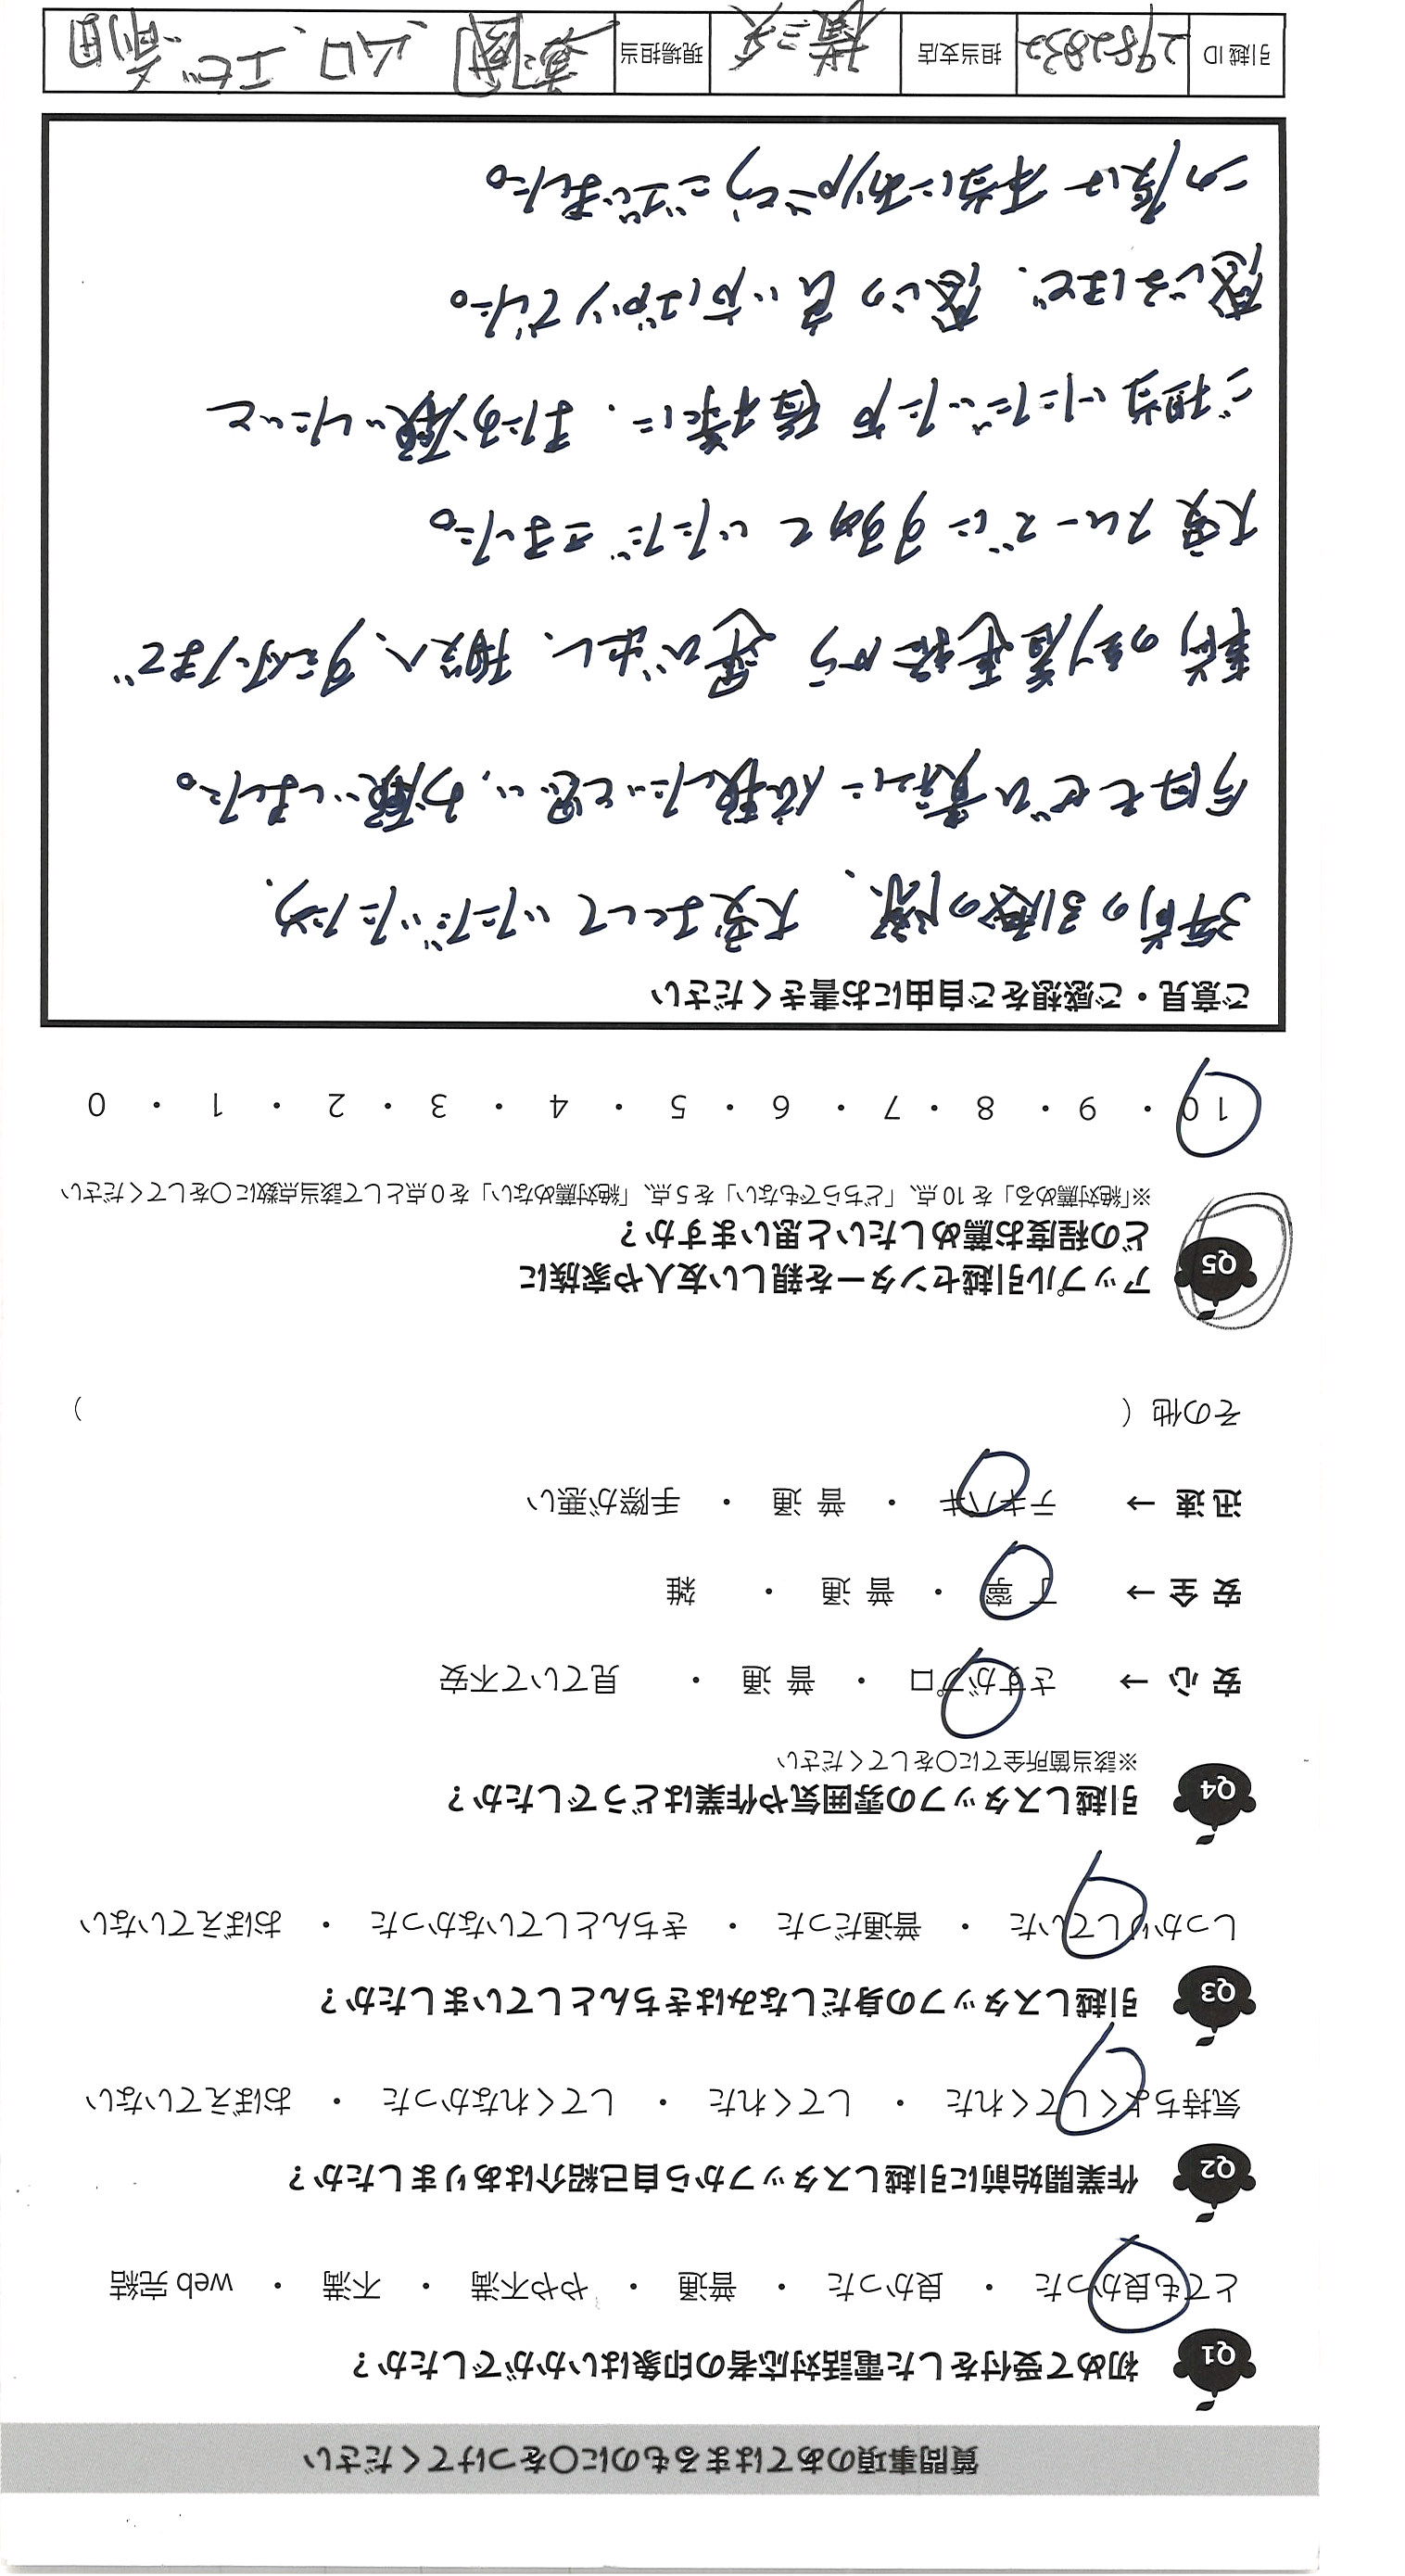 質問事項のあてはまるものに○をつけてください
Q1 初めて受付をした電話対応者の印象はいかがでしたか？
とても良かった ・ 良かった ・ 普通 ・ やや不満 ・ 不満 ・ web 完結
Q2 作業開始前に引越しスタッフから自己紹介はありましたか？
気持ちよくしてくれた ・ してくれた ・ してくれなかった ・ おぼえていない
Q3 引越しスタッフの身だしなみはきちんとしていましたか？
しっかりしていた ・ 普通だった ・ きちんとしていなかった ・ おぼえていない
Q4 引越しスタッフの雰囲気や作業はどうでしたか？
※該当箇所全てに○をしてください
安 心 → さすがプロ ・ 普 通 ・ 見ていて不安
安 全 → 丁 寧 ・ 普 通 ・ 雑
迅 速 → テキパキ ・ 普 通 ・ 手際が悪い
その他（ ）
Q5 アップル引越センターを親しい友人や家族に
どの程度お薦めしたいと思いますか？
※「絶対薦める」を 10 点、「どちらでもない」を 5 点、「絶対薦めない」を 0 点として該当点数に○をしてください
10 ・ 9 ・ 8 ・ 7 ・ 6 ・ 5 ・ 4 ・ 3 ・ 2 ・ 1 ・ 0
ご意見・ご感想をご自由にお書きください
3年前の引越の際、大変よくしていただいたため、
今回もぜひ貴社に依頼したいと思い、お願いしました。
事前の到着連絡から運び出し、搬入、片付けまで
大変スムーズにすすめていただきました。
ご担当いただいた方皆様に、またお願いしたいと
感じるほど、感じの良い方ばかりでした。
この度は本当にありがとうございました。
引越 ID 2982832 担当支店 横三矢 現場担当 山口、エビ、前田